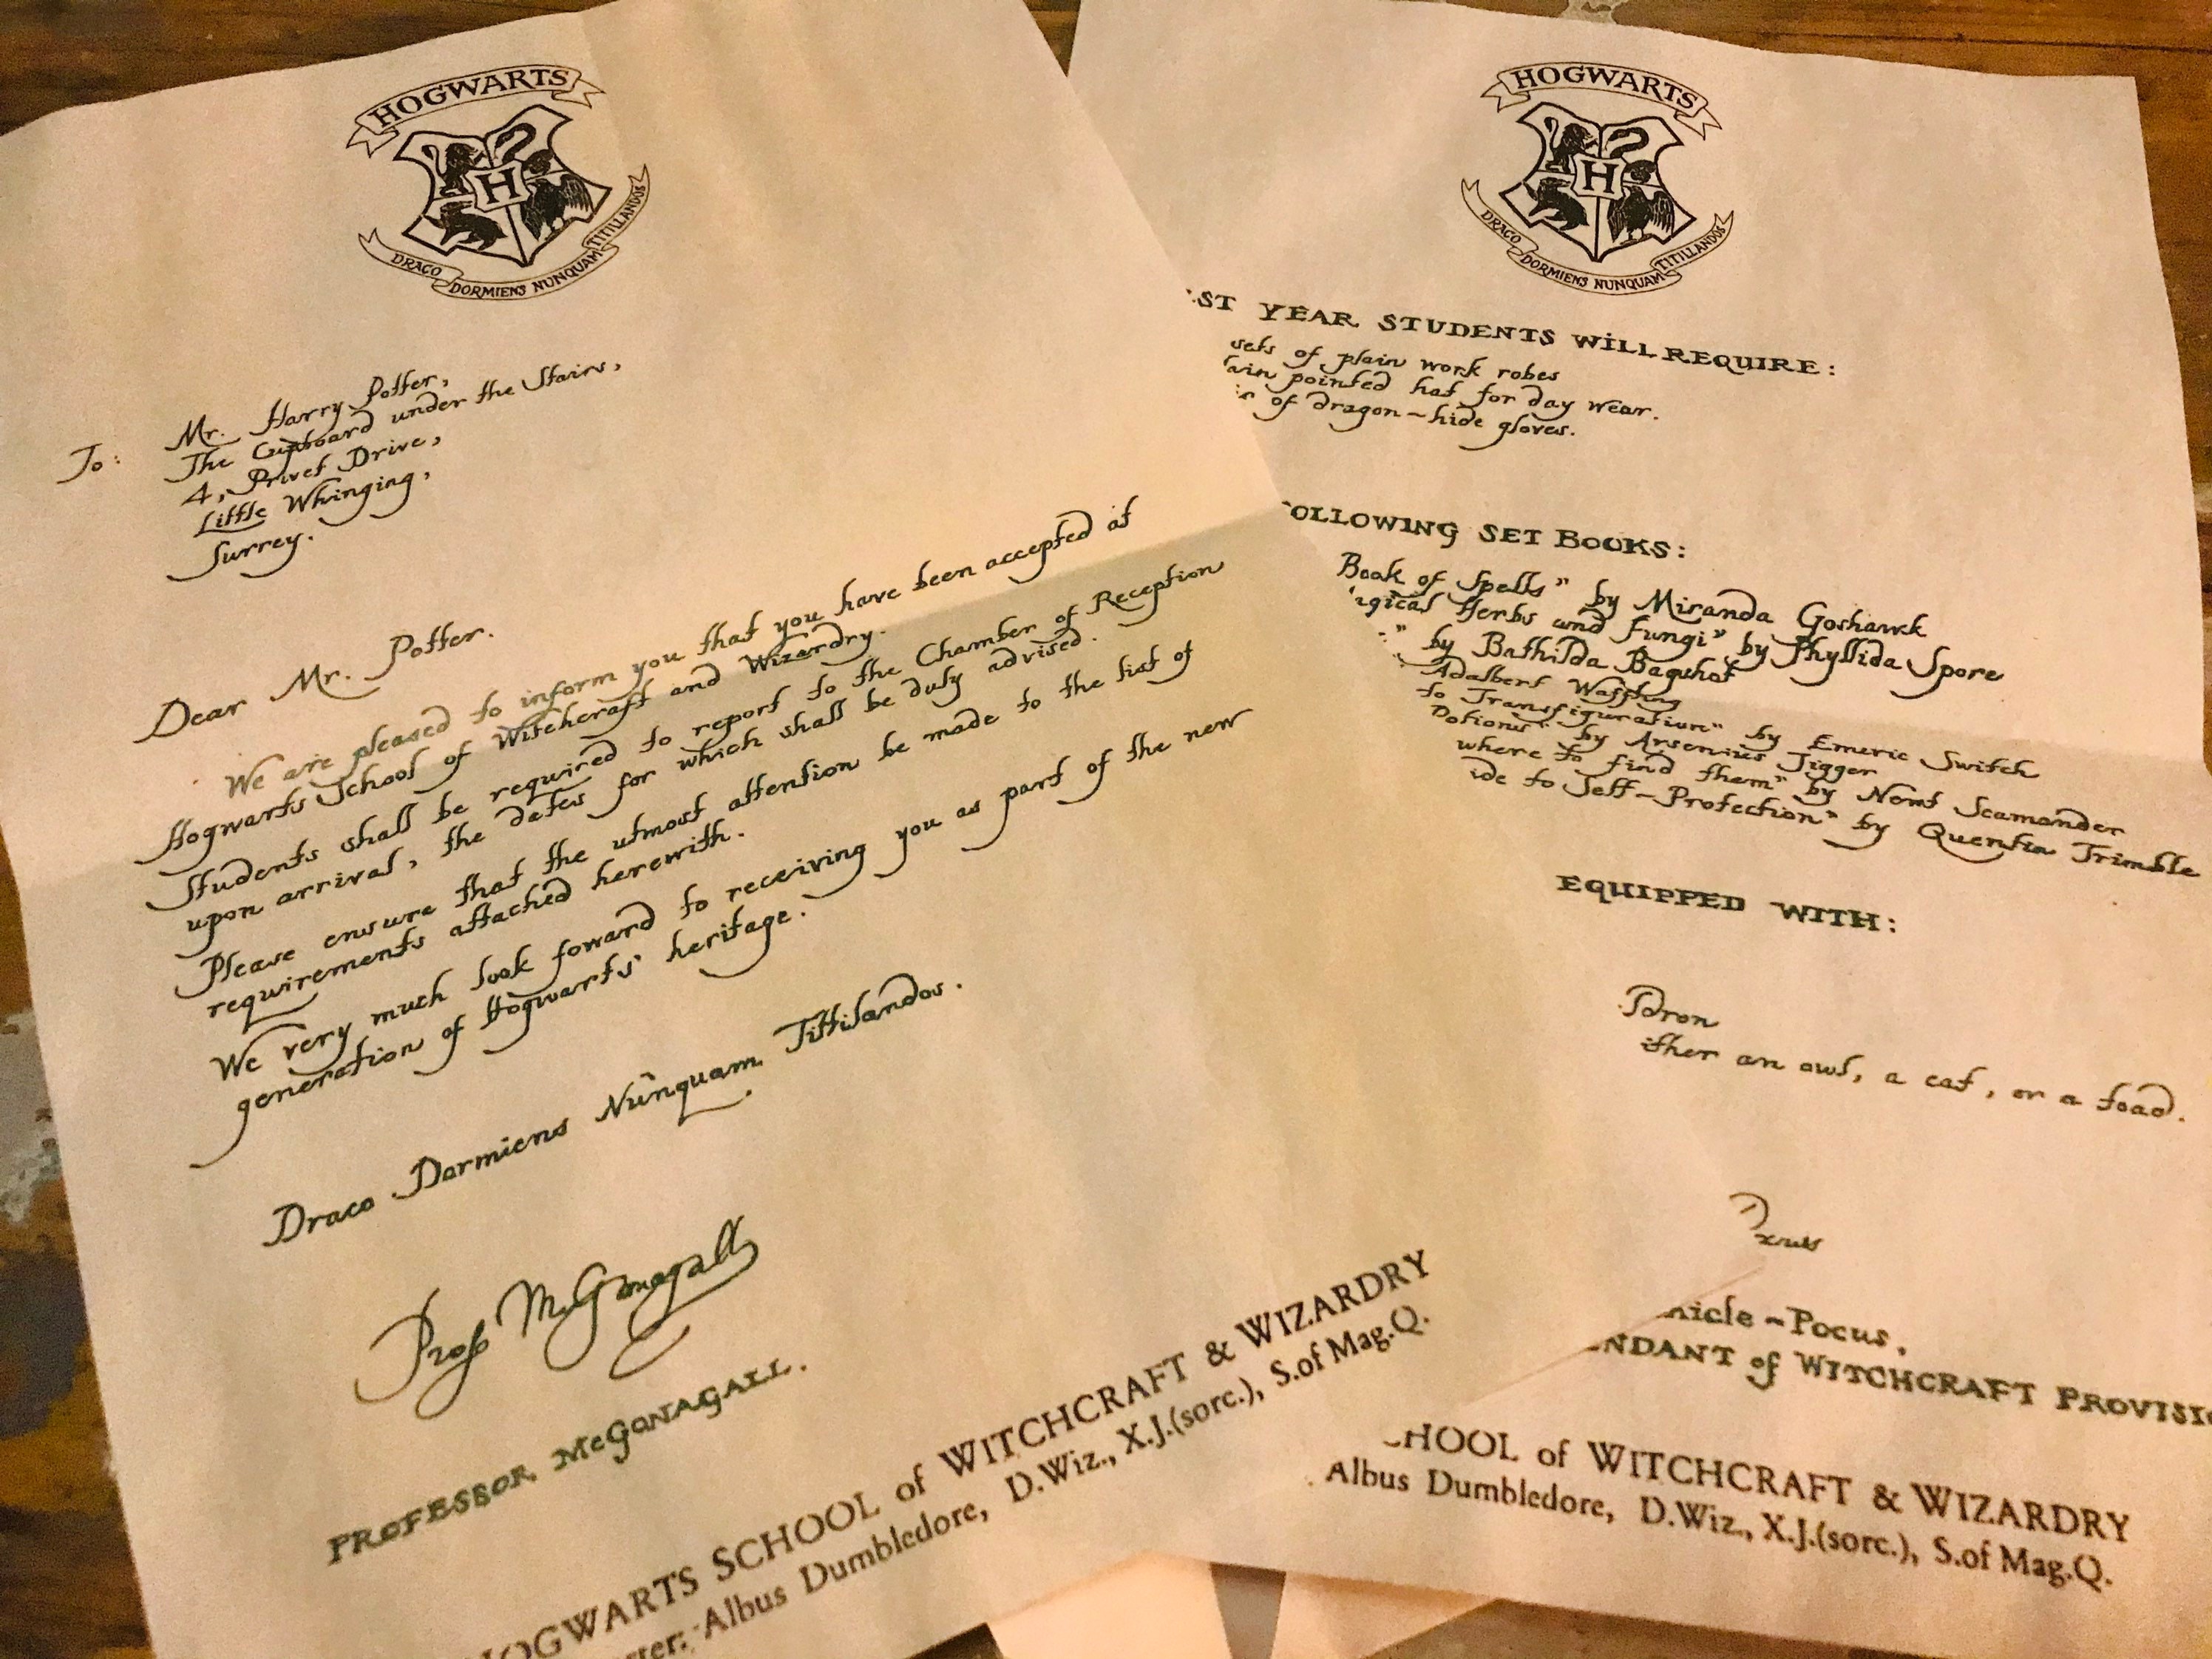 HOGWARTS
H
DRACO DORMIENS NUNQUAM TITILLANDUS
To: Mr. Harry Potter,
The Cupboard under the Stairs,
4, Privet Drive,
Little Whinging,
Surrey.
Dear Mr. Potter.
We are pleased to inform you that you have been accepted at
Hogwarts School of Witchcraft and Wizardry.
Students shall be required to report to the Chamber of Reception
upon arrival, the dates for which shall be duly advised.
Please ensure that the utmost attention be made to the list of
requirements attached herewith.
We very much look foward to receiving you as part of the new
generation of Hogwarts' heritage.
Draco Dormiens Nunquam Tittilandus.
Prof McGonagall
PROFESSOR McGONAGALL.
HOGWARTS SCHOOL of WITCHCRAFT & WIZARDRY
Albus Dumbledore, D.Wiz., X.J.(sorc.), S.of Mag.Q.
HOGWARTS
H
DRACO DORMIENS NUNQUAM TITILLANDUS
ST YEAR STUDENTS WILL REQUIRE:
sets of plain work robes
ain pointed hat for day wear.
of dragon-hide gloves.
OLLOWING SET BOOKS:
Book of Spells" by Miranda Goshawk
gical Herbs and Fungi" by Phyllida Spore
" by Bathilda Bagshot
Adalbert Waffling
to Transfiguration" by Emeric Switch
Potions" by Arsenius Jigger
where to find them" by Newt Scamander
ide to Self-Protection" by Quentin Trimble
EQUIPPED WITH:
ldron
ither an owl, a cat, or a toad.
nicle-Pocus,
NDANT of WITCHCRAFT PROVISI
HOOL of WITCHCRAFT & WIZARDRY
Albus Dumbledore, D.Wiz., X.J.(sorc.), S.of Mag.Q.